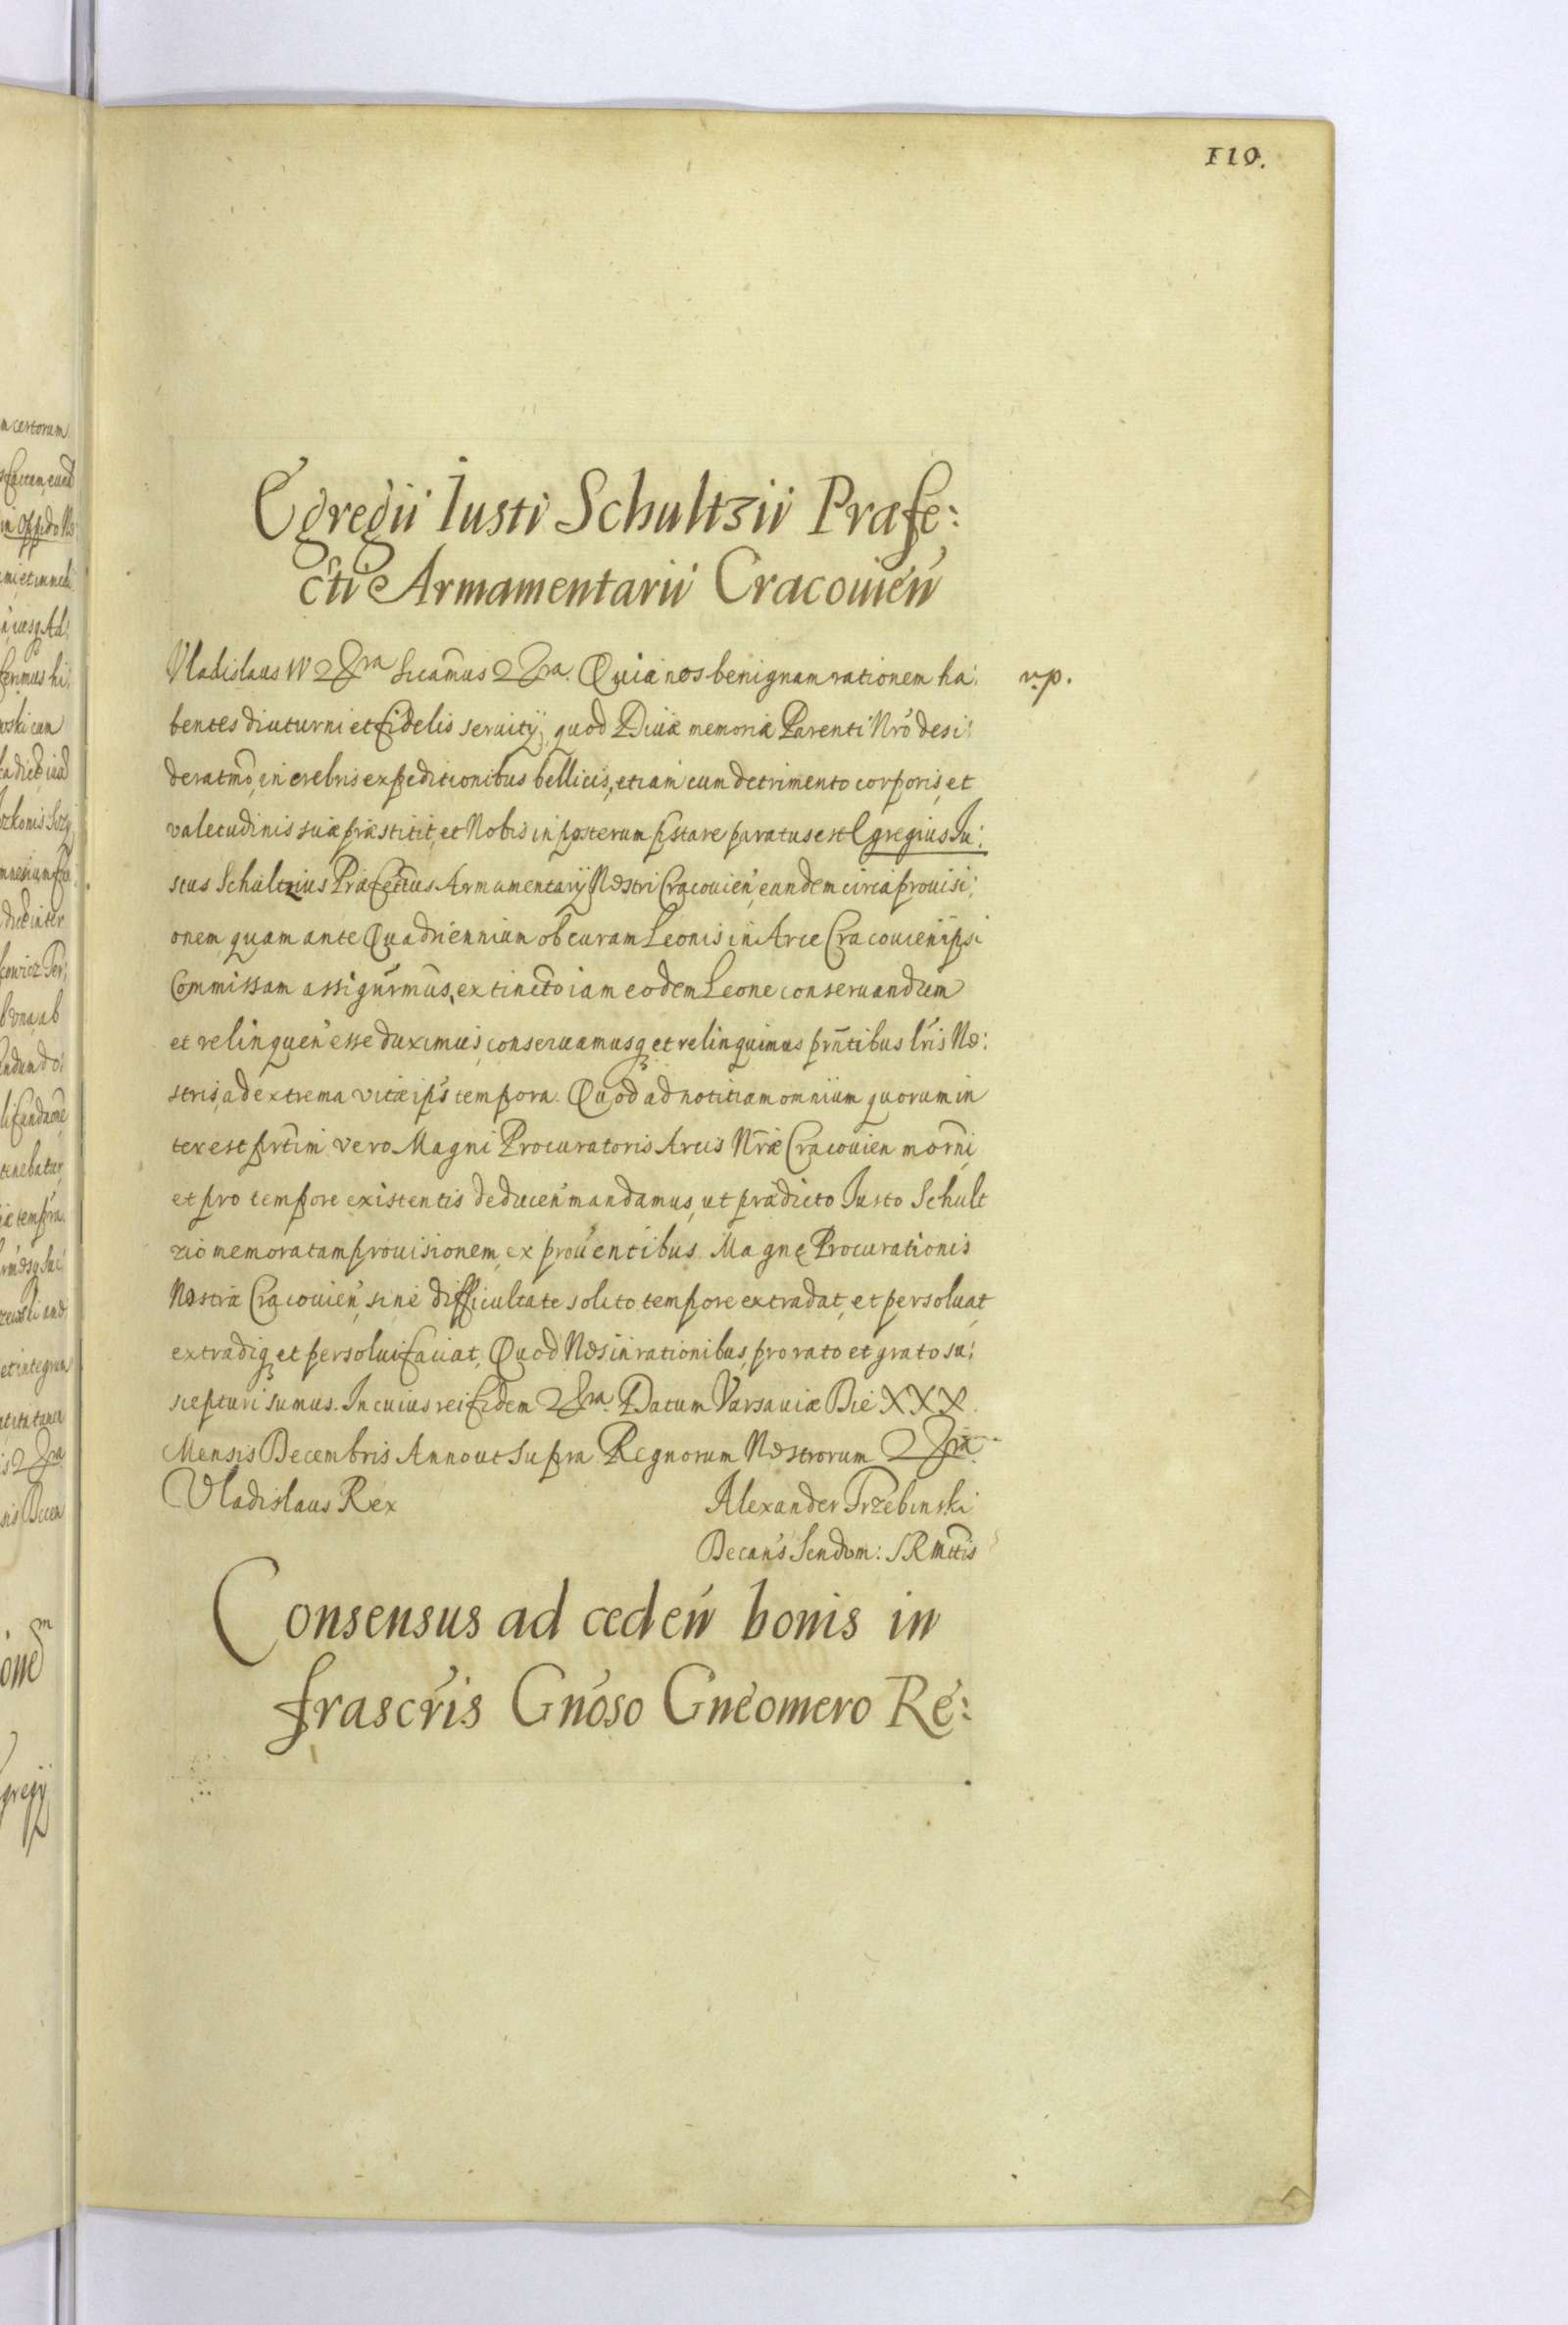 110.
Egregii Iusti Schultzii Præfe:
cti Armamentarii Cracouień
Vladislaus IV &ra Sicamus &ra. Quia nos benignam rationem ha: v.p.
bentes diuturni et fidelis seruitÿ, quod Diuæ memoriæ Parenti Nr̃o desi:
deratm̃o, in crebris expeditionibus bellicis, etiam cum detrimento corporis, et
valetudinis suæ præstitit, et Nobis in posterum pr̃stare paratus est Egregius Ju:
stus Schultzius Præfectus Armamentarÿ Nostri Cracouień, eundem circa prouisi:
onem quam ante Quadriennium ob curam Leonis in Arce Cracouien ipsi
Commissam assignr̃mus, extincto iam eodem Leone conseruandum
et relinqueń esse duximus, conseruamusq et relinquimus pr̃ntibus lr̃is No:
stris, ad extrema vitæ ips̃ tempora. Quod ad notitiam omnium quorum in
terest pr̃tim vero Magni Procuratoris Arcis Nr̃æ Cracouien mor̃ni,
et pro tempore existentis deduceń mandamus, ut prædicto Justo Schult
zio memoratam prouisionem, ex prouentibus Magnę Procurationis
Nostræ Cracouień, sine difficultate solito tempore extradat, et persoluat,
extradiq et persolui faciat, Quod Nos in rationibus, pro rato et grato su:
scepturi sumus. In cuius rei fidem &ra. Datum Varsauiæ Die XXX.
Mensis Decembris Anno ut Supra Regnorum Nostrorum &ra.
Vladislaus Rex Alexander Trzebinski
Decan's Sendom: S R Mttis
Consensus ad cedeń bonis in
frascr̃is Gnóso Gneomero Re: